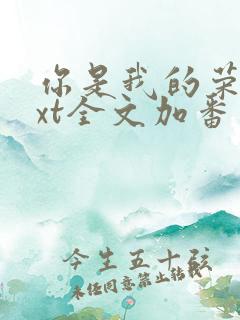 你是我的荣
xt全文加番
今生五十弦
未经同意禁止转载